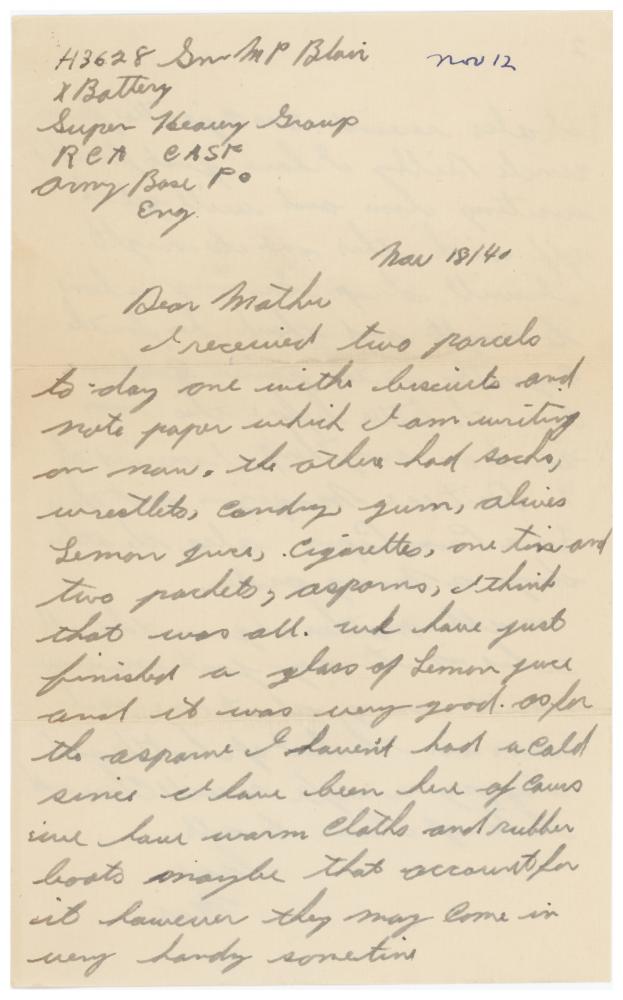 H3628 Gnr M P Blair Nov 12
X Battery
Super Heavy Group
RCA CASF
Army Base Po
Eng.
Nov 18/40
Dear Mother
I received two parcels
to-day one with biscuits and
note paper which I am writing
on now. the other had socks,
wrestlets, candy, gum, olives
Lemon juce, Cigarettes, one tin and
two packets, asporns, I think
that was all. we have just
finished a glass of Lemon juce
and it was very good. as for
the asparne I haven't had a Cold
since I have been here of Cours
we have warm Cloths and rubber
boots maybe that account for
it however they may Come in
very handy sometime